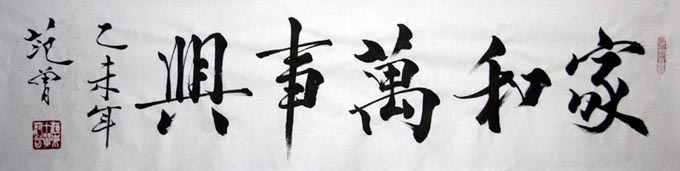 家和萬事興
乙未年
范曾